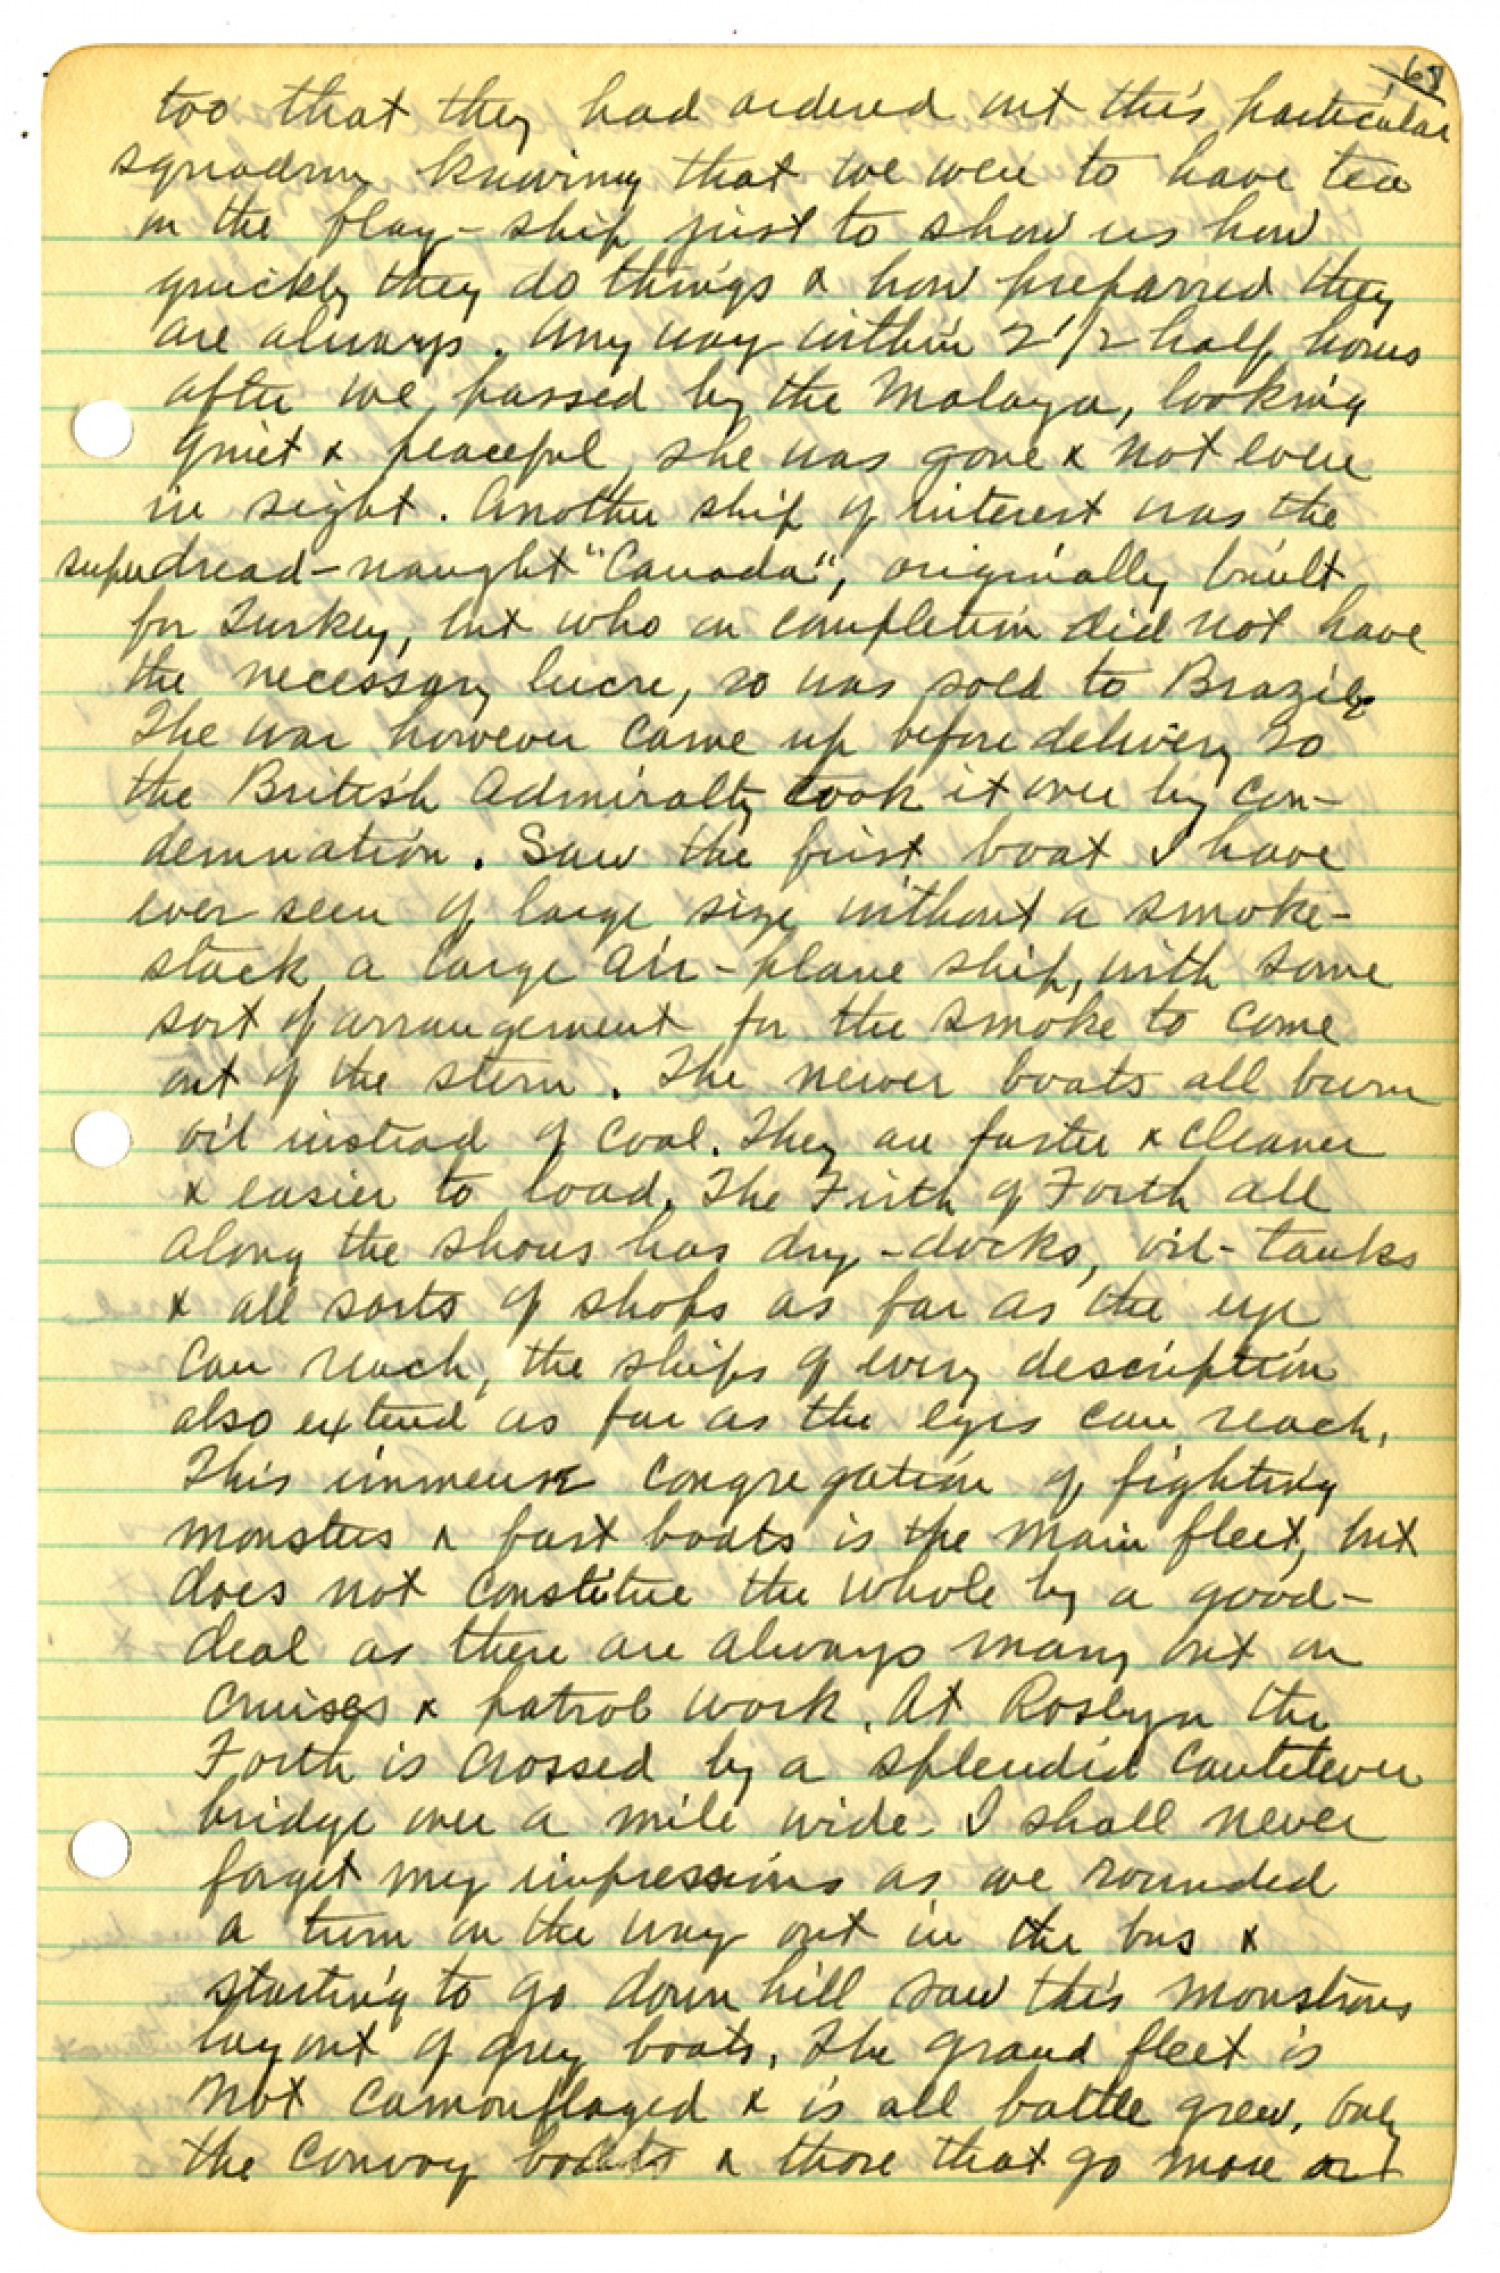 too that they had ordered out this particular
squadron knowing that we were to have tea
on the flag-ship just to show us how
quickly they do things & how preparred they
are always. Any way within 2 1/2 half hours
after we passed by the Malaya, looking
quiet & peaceful, she was gone & not even
in sight. Another ship of interest was the
super dread-naught "Canada", originally built
for Turkey, but who on completion did not have
the necessary lucre, so was sold to Brazil.
The war however came up before delivery so
the British Admiralty took it over by con-
demnation. Saw the first boat I have
ever seen of large size without a smoke-
stack, a large air-plane ship, with some
sort of arrangement for the smoke to come
out of the stern. The newer boats all burn
oil instead of coal. They are faster & cleaner
& easier to load. The Firth of Forth all
along the shores has dry-docks, oil-tanks
& all sorts of shops as far as the eye
can reach, the ships of every description
also extend as far as the eyes can reach.
This immense congregation of fighting
monsters & fast boats is the main fleet, but
does not constitue the whole by a good-
deal as there are always many out on
cruises & patrol work. At Roslyn the
Forth is crossed by a splendid cantilever
bridge over a mile wide. I shall never
forget my impressions as we rounded
a turn on the way out in the bus &
starting to go down hill saw this monstrous
layout of grey boats. The grand fleet is
not camouflaged & is all battle grew. Only
the convoy boats & those that go more or